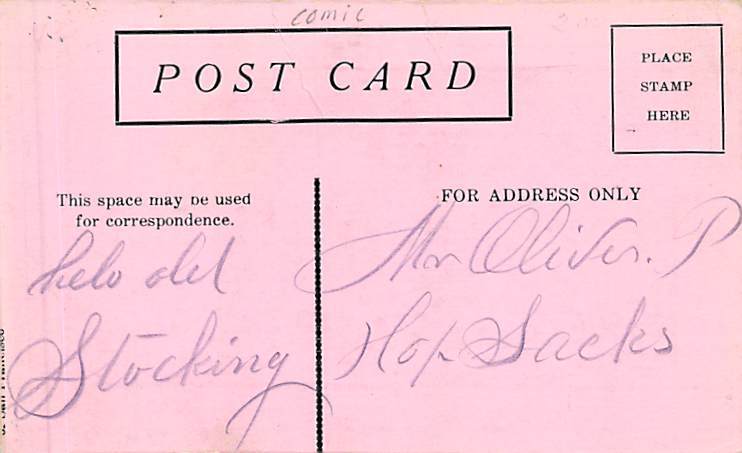 comic
POST CARD
PLACE
STAMP
HERE
This space may be used
for correspondence.
FOR ADDRESS ONLY
helo old
Stocking
Mr Oliver. P
Hop Sacks